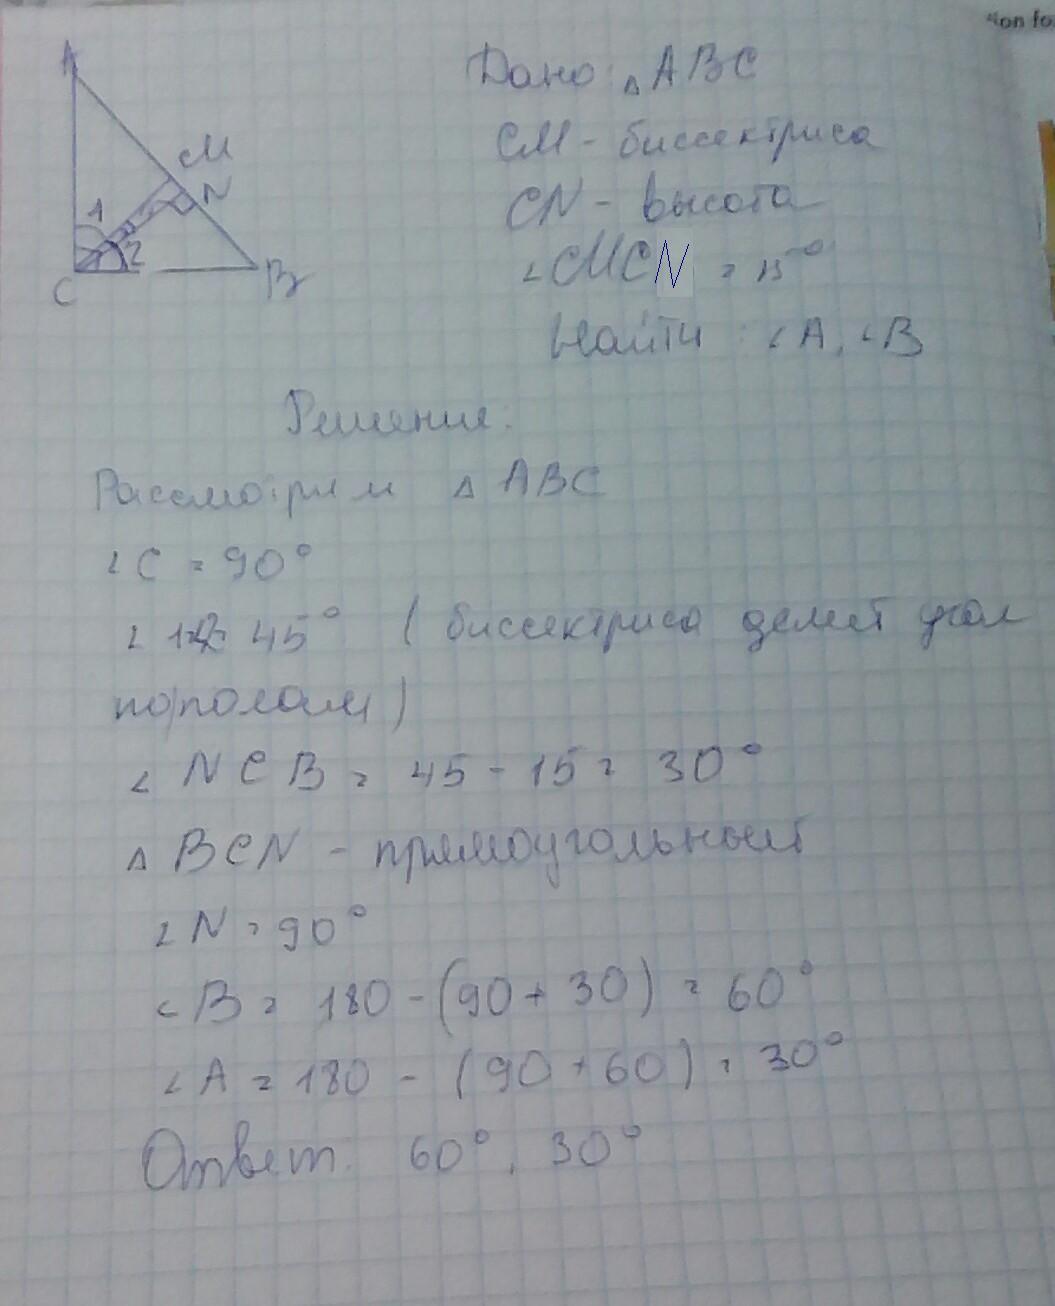 tion fo
A
M
N
1
2
C
B
Дано: △ABC
CM - биссектриса
CN - высота
∠MCN = 15°
Найти: ∠A, ∠B
Решение:
Рассмотрим △ ABC
∠C = 90°
45° (биссектриса делит угол
пополам)
∠NCB = 45 - 15 = 30°
△ BCN - прямоугольный
∠N = 90°
∠B = 180 - (90 + 30) = 60°
∠A = 180 - (90 + 60) = 30°
Ответ: 60°, 30°